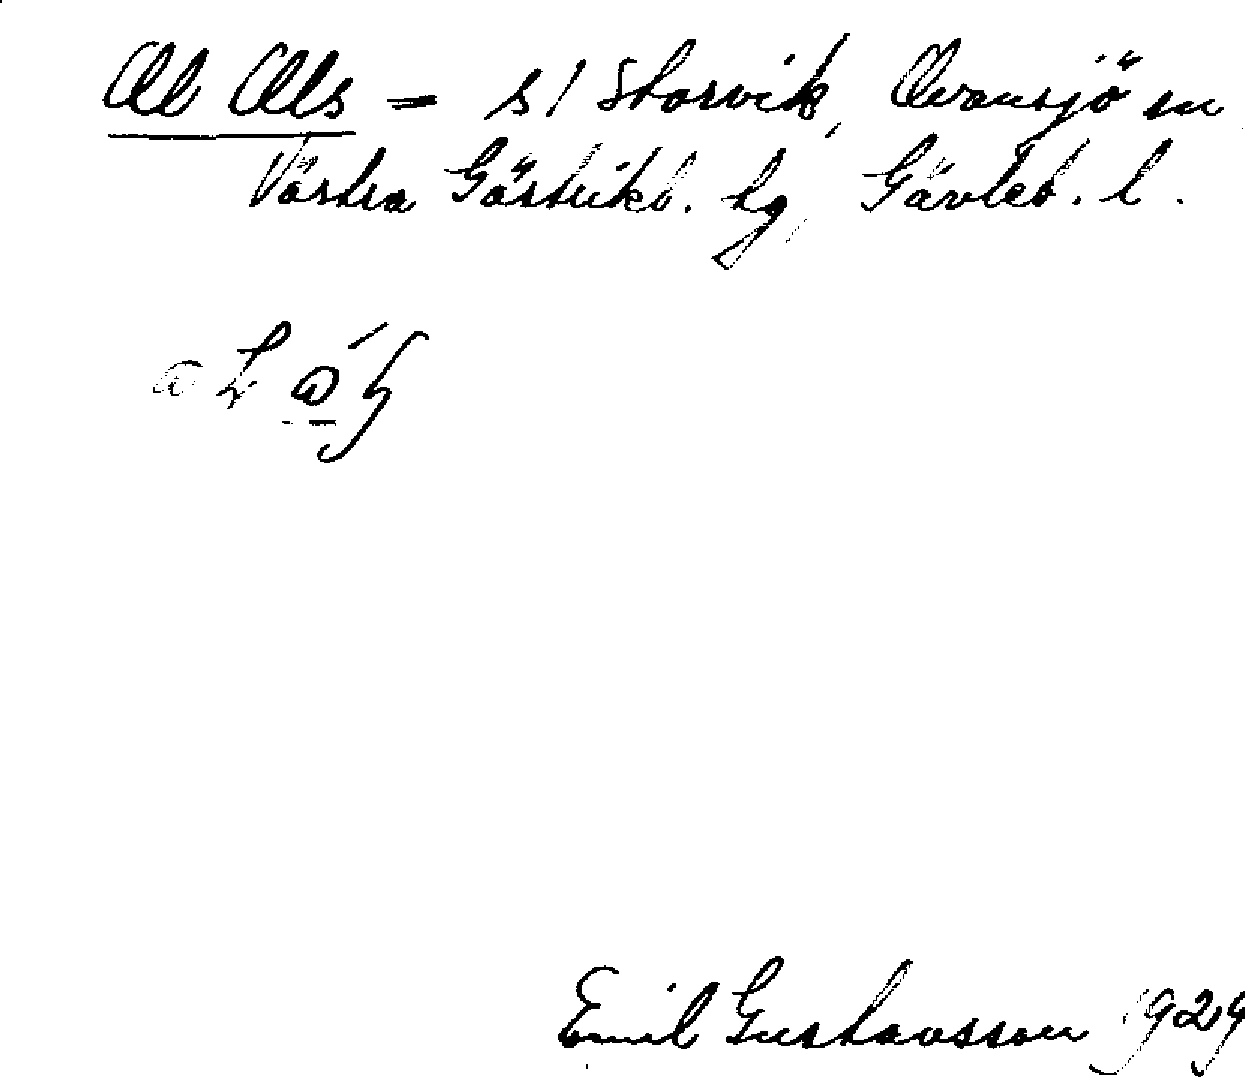 Al Als = s/ Storvik, Ovansjö sn
Västra Gästrikl. hg, Gävleb. l.
Emil Gustavsson 1929